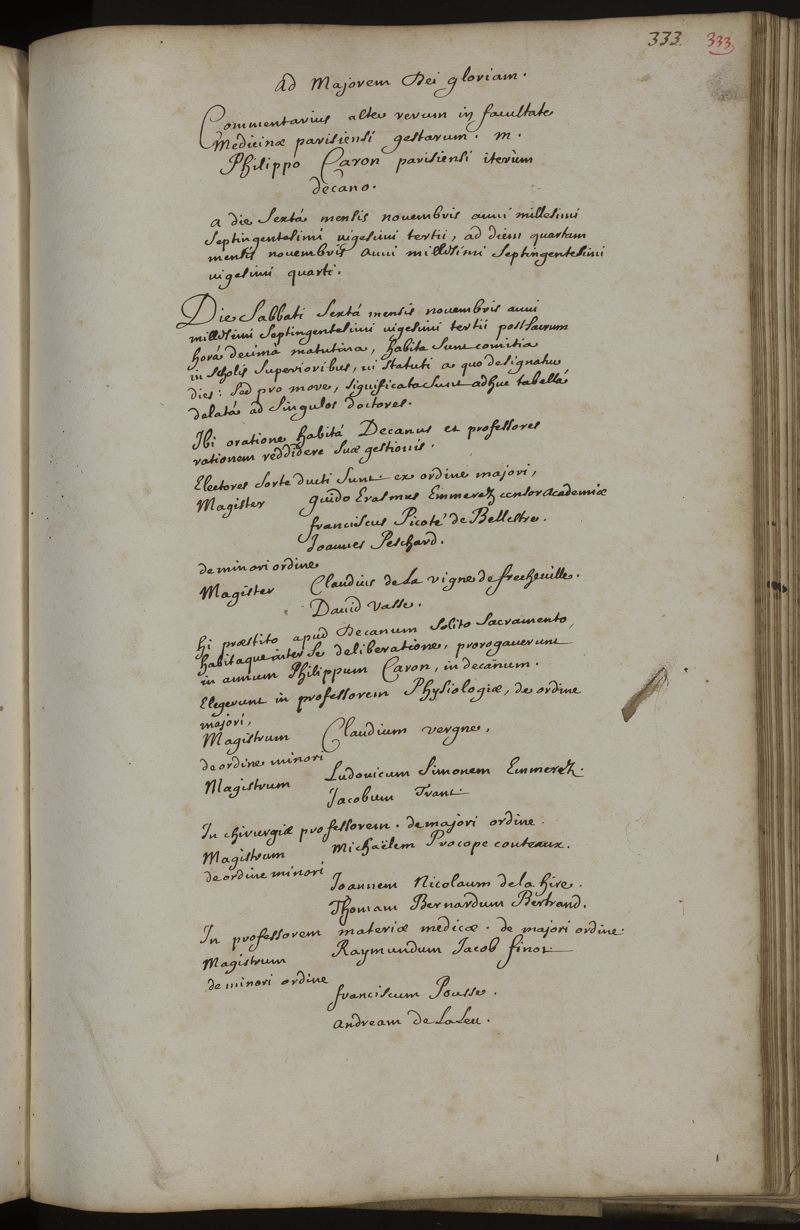 333. 333
Ad Majorem Dei gloriam.
Commentarius alter rerum in facultate
Medicinæ parisiensi gestarum. M.
Philippo Caron parisiensi iterùm
decano.
a die Sextâ mensis novembris anni millesimi
Septingentesimi vigesimi tertii, ad diem quartam
mensis novembris anni millesimi Septingentesimi
vigesimi quarti.
Die Sabbati Sextâ mensis novembris anni
millesimi Septingentesimi vigesimi tertii post Sacrum
horâ decimâ matutina, habita Sunt comitia
in Scholis Superioribus, vi Statuti a quo designatur
dies: Sed pro more, significata Sunt adhuc tabellâ
delatâ ad Singulos doctores.
Ibi oratione habitâ Decanus et professores
rationem reddidere Suæ gestionis.
Electores Sorte ducti Sunt ex ordine majori,
Magister Guido Erasmus Emmerez censor academiæ
franciscus Picoté de Bellestre.
Joannes Peschard.
de minori ordine
Magister Claudius de La vigne de frecheville.
David Vasse.
hi præstito apud Decanum Solito Sacramento,
habitaque inter Se deliberatione, prorogaverunt
in annum Philippum Caron, in decanum.
Elegerunt in professorem Physiologiæ, de ordine
majori,
Magistrum Claudium vergne,
de ordine minori
Magistrum Ludovicum Simonem Emmerez.
Jacobum Trant.
In chirurgiæ professorem. de majori ordine.
Magistrum Michaëlem Procope couteaux.
de ordine minori
Joannem Nicolaum de la hire.
Thomam Bernardum Bertrand.
In professorem materiæ medicæ. de majori ordine.
Magistrum Raymundum Jacob finot
de minori ordine
franciscum Pousse.
andream de LaLeu.